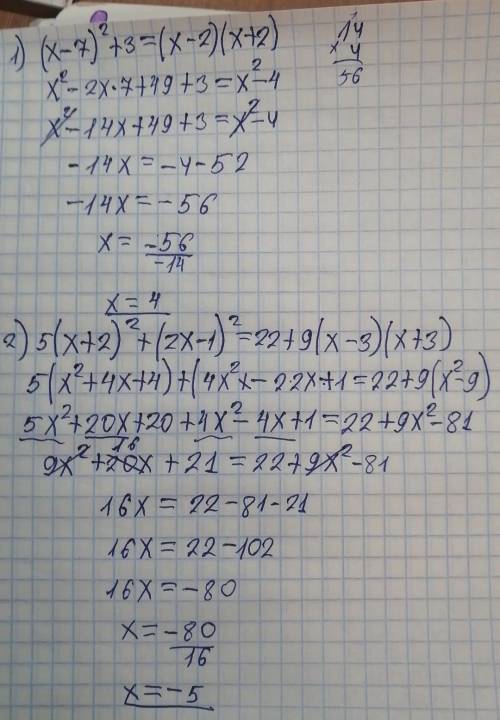 1) (x-7)²+3=(x-2)(x+2)
14
× 4
56
x²-2x·7+49+3=x²-4
x²-14x+49+3=x²-4
-14x=-4-52
-14x=-56
x= -56/-14
x=4
2) 5(x+2)²+(2x-1)²=22+9(x-3)(x+3)
5(x²+4x+4)+(4x²x-2·2x+1=22+9(x²-9)
5x²+20x+20+4x²-4x+1=22+9x²-81
16
9x²+20x+21=22+9x²-81
16x=22-81-21
16x=22-102
16x=-80
x= -80/16
x=-5